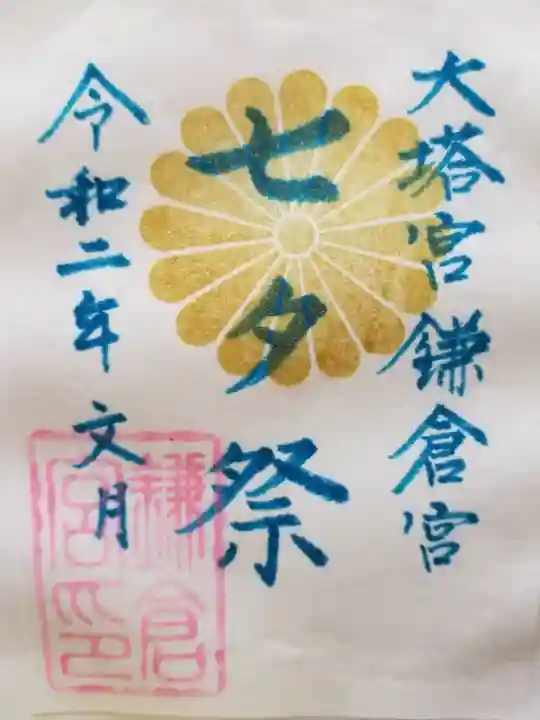 大塔宮鎌倉宮
七夕祭
令和二年 文月
鎌倉
宮印